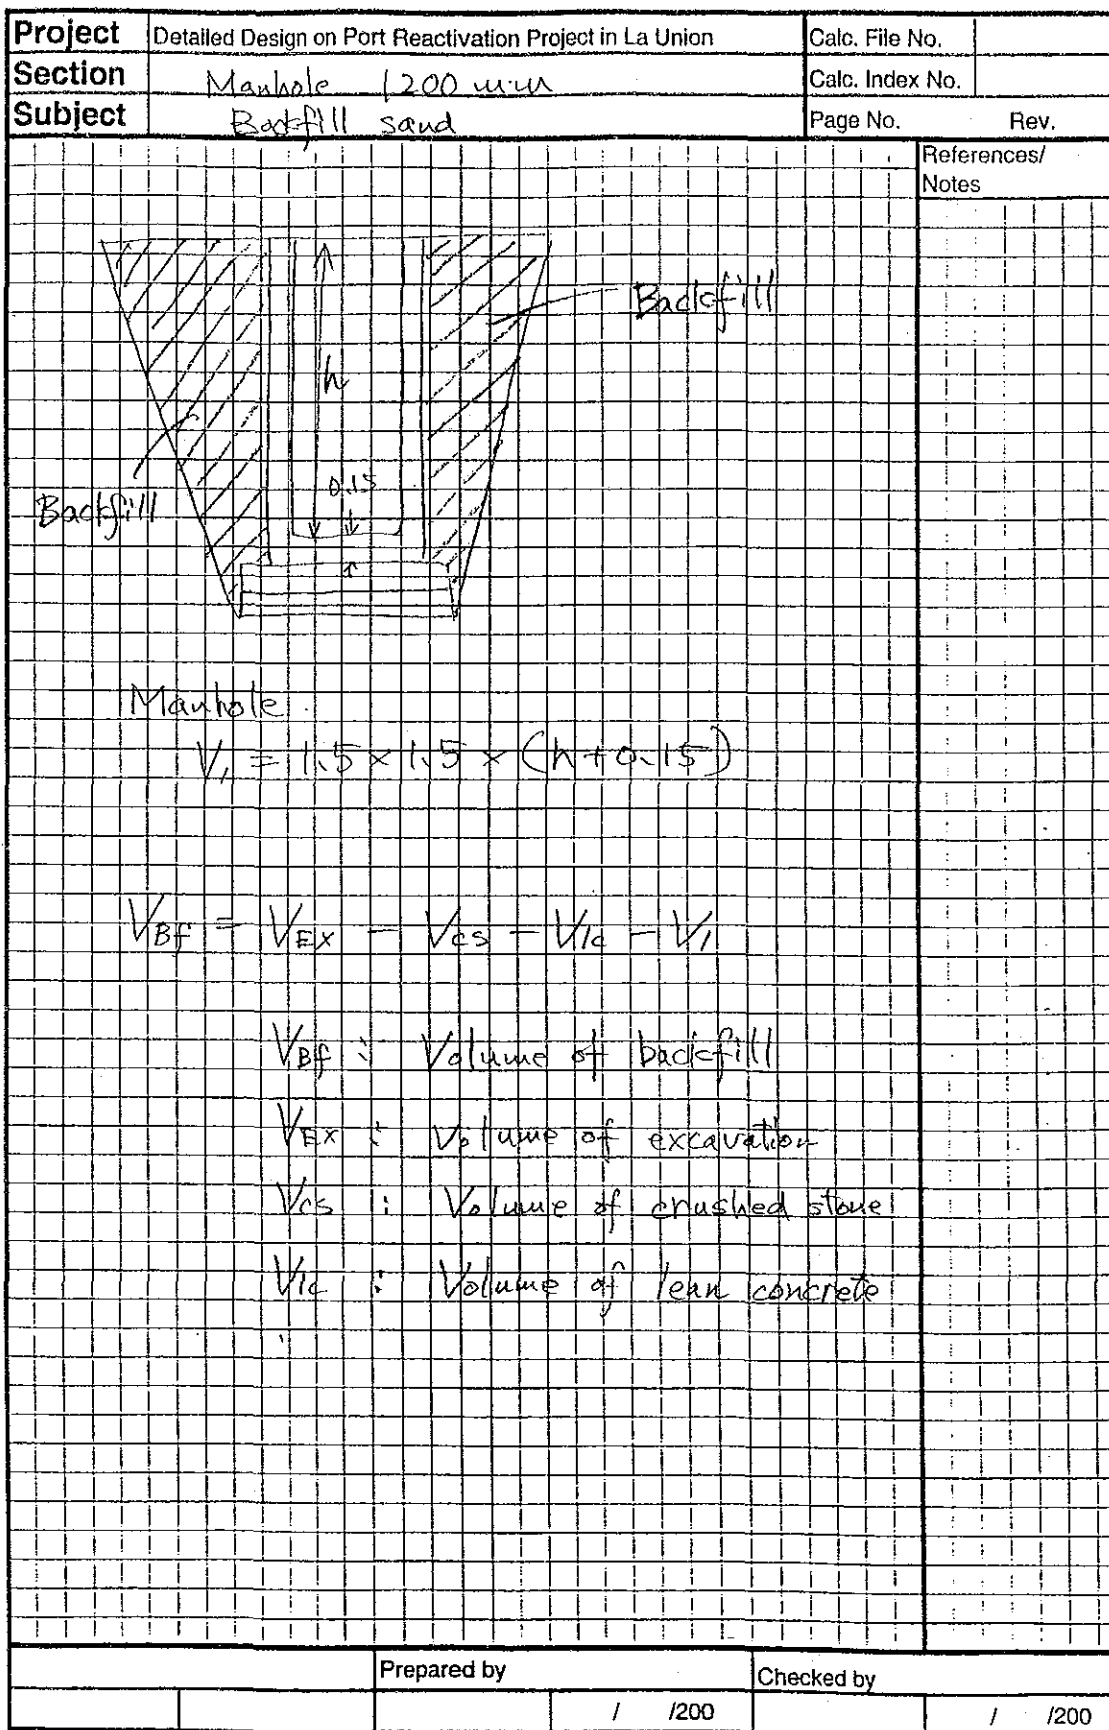 Project Detailed Design on Port Reactivation Project in La Union Calc. File No.
Section Manhole 1200 mm Calc. Index No.
Subject Backfill sand Page No. Rev.
References/
Notes
Backfill
h
0.15
Backfill
Manhole
V₁ = 1.5 × 1.5 × (h + 0.15)
VBf = VEX - Vcs - Vlc - V₁
VBf : Volume of backfill
VEX : Volume of excavation
Vcs : Volume of crushed stone
Vlc : Volume of lean concrete
Prepared by Checked by
/ /200 / /200